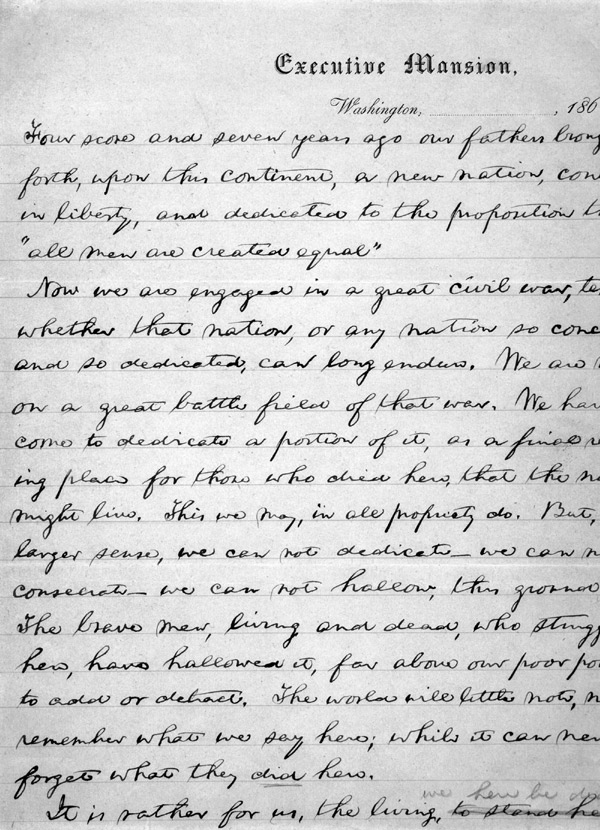 Executive Mansion,
Washington, , 186
Four score and seven years ago our fathers brong
forth, upon this continent, a new nation, con
in liberty, and dedicated to the proposition t
"all men are created equal"
Now we are engaged in a great civil war, te
whether that nation, or any nation so conc
and so dedicated, can long endure. We are
on a great battle field of that war. We hav
come to dedicate a portion of it, as a final r
ing place for those who died here, that the na
might live. This we may, in all propriety do. But,
larger sense, we can not dedicate — we can n
consecrate — we can not hallow, this ground
The brave men, living and dead, who strugg
here, have hallowed it, far above our poor po
to add or detract. The world will little note, n
remember what we say here; while it can nev
forget what they did here.
we here be de
It is rather for us, the living, to stand he